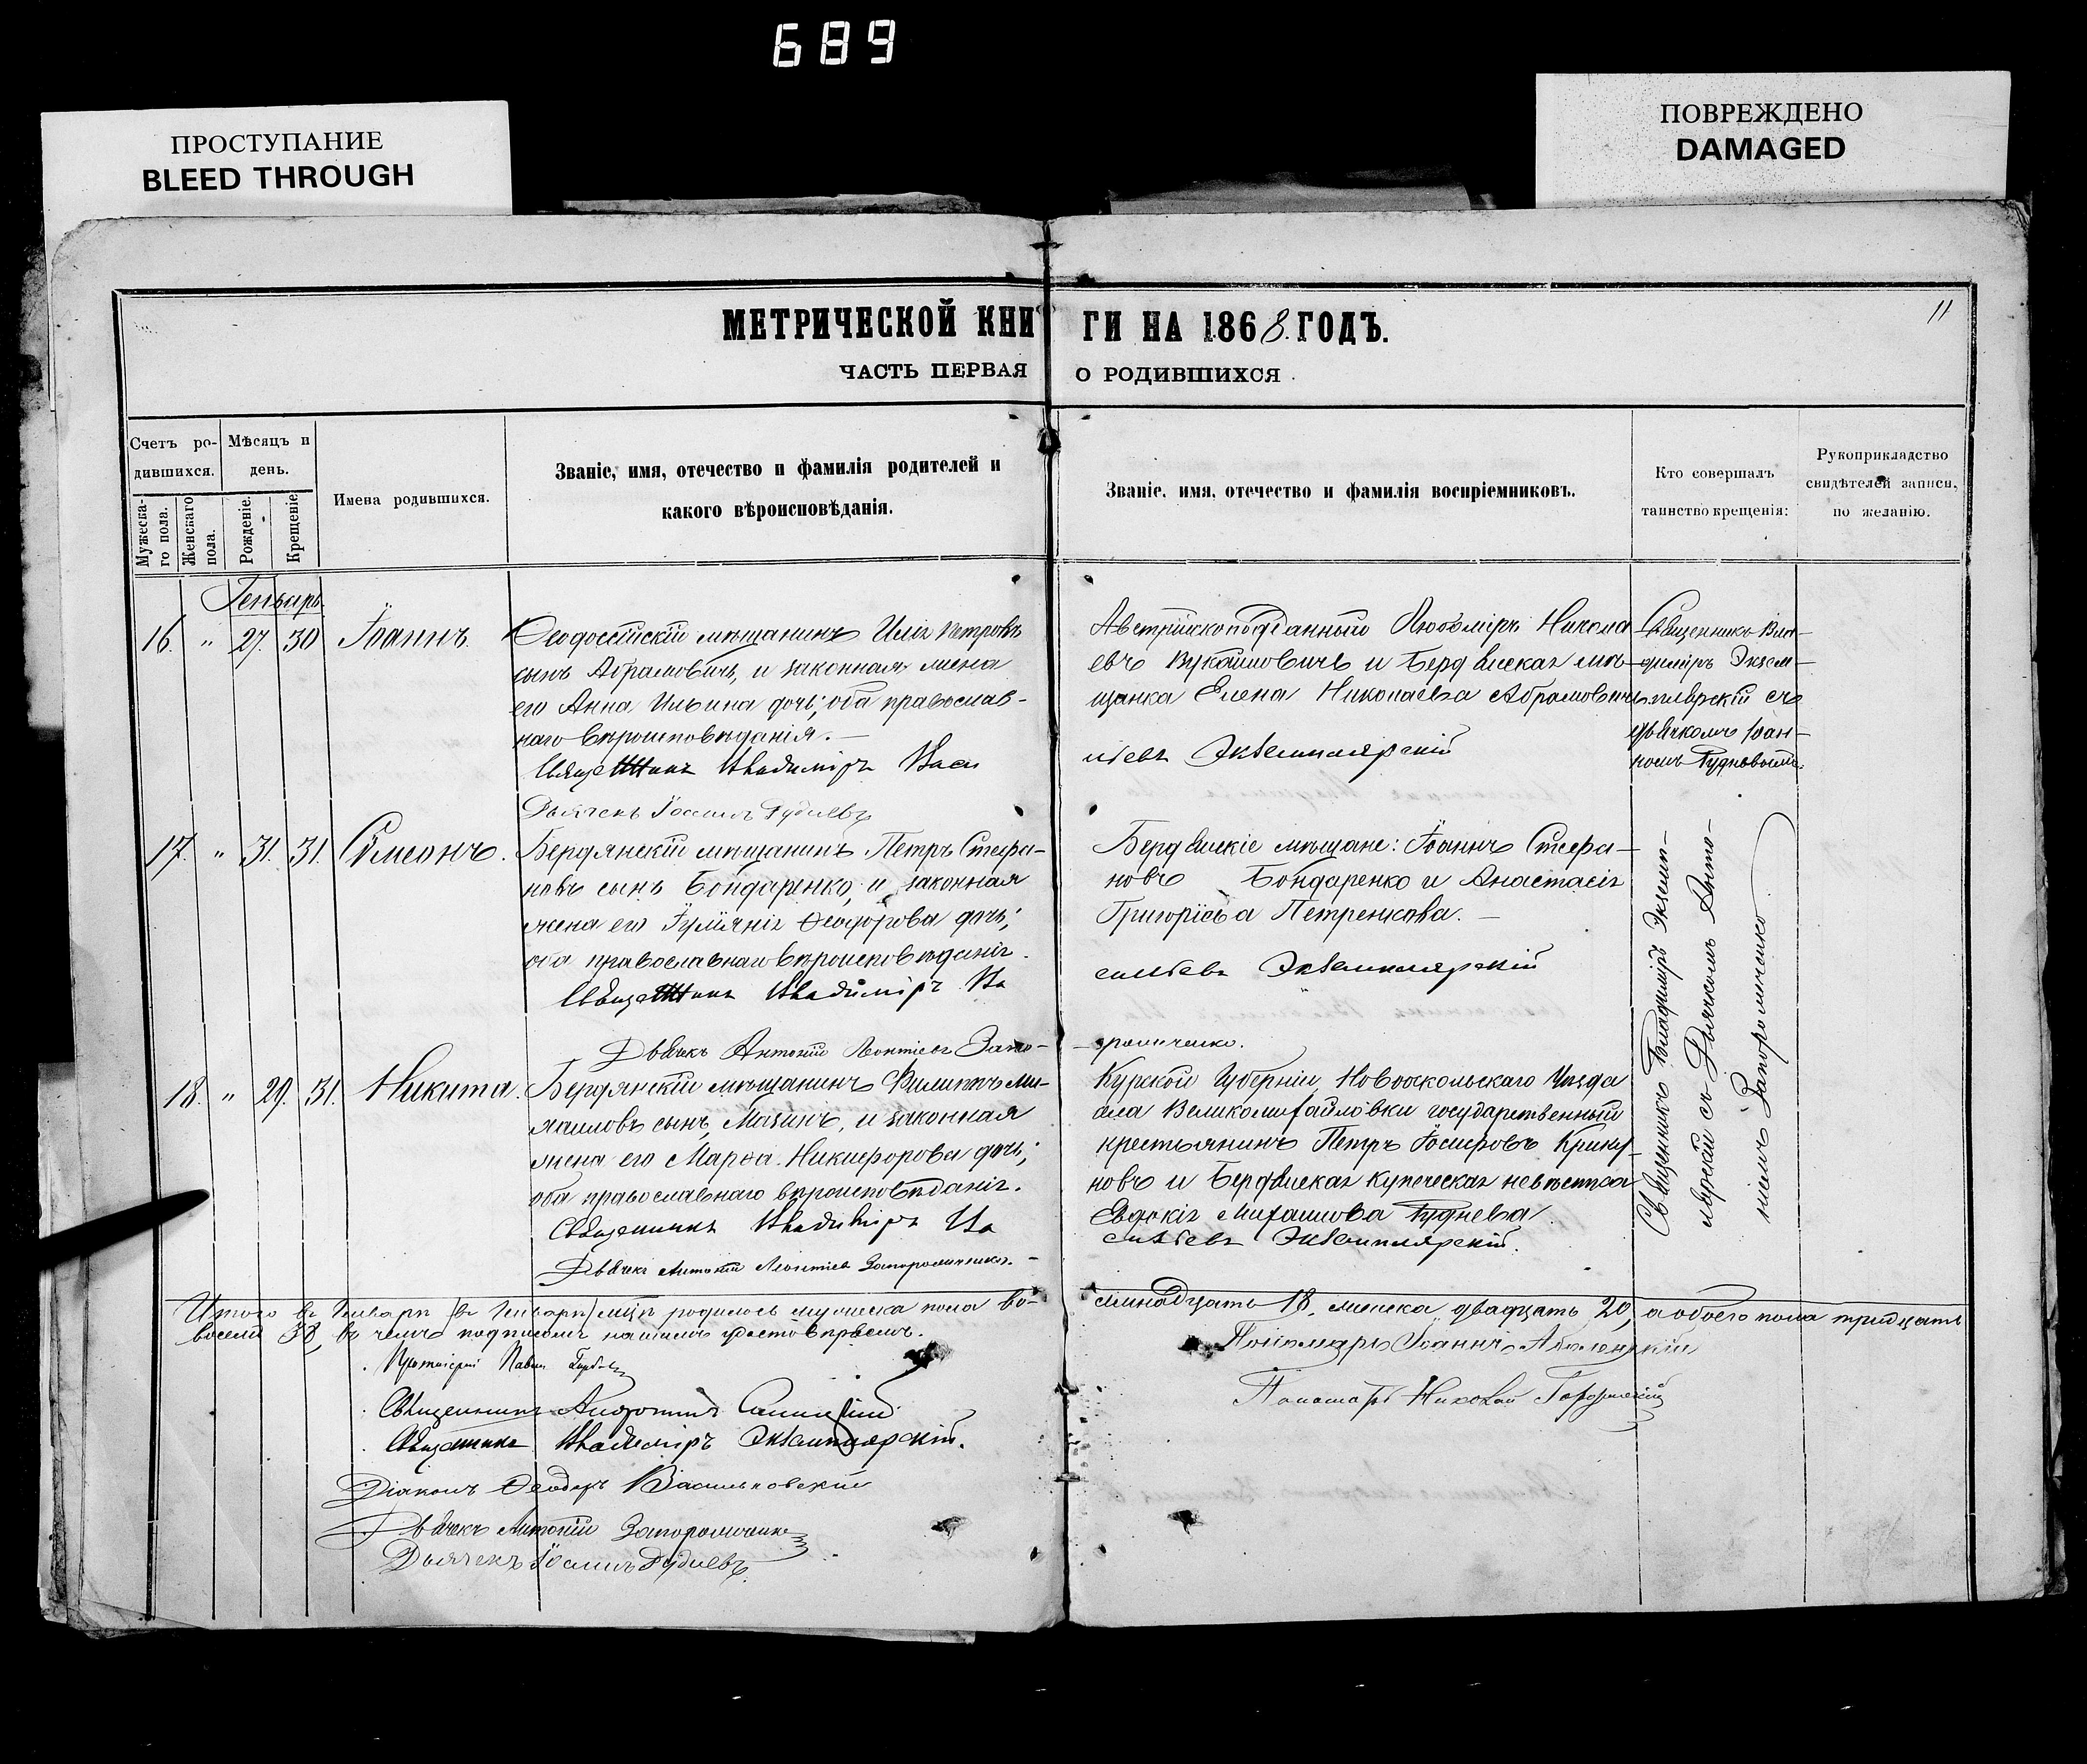 689
ПРОСТУПАНИЕ
BLEED THROUGH
ПОВРЕЖДЕНО
DAMAGED
11
МЕТРИЧЕСКОЙ КНИГИ НА 1868 ГОДЪ.
ЧАСТЬ ПЕРВАЯ О РОДИВШИХСЯ.
Счетъ ро-
дившихся.
Мужеска-
го пола.
Женскаго
пола.
Мѣсяцъ и
день.
Рожденіе.
Крещеніе
Имена родившихся.
Званіе, имя, отечество и фамилія родителей и
какого вѣроисповѣданія.
Званіе, имя, отечество и фамилія воспріемниковъ.
Кто совершалъ
таинство крещенія:
Рукоприкладство
свидѣтелей записи,
по желанію.
Генварь
16. " 27. 30 Іоаннъ.
Ѳеодосійскій мѣщанинъ Илія Петровъ
сынъ Абрамовичъ, и законная жена
его Анна Ильина дочь; оба православ-
наго вѣроисповѣданія. —
Священникъ Владиміръ Васи
Дьячекъ Іоаннъ Рудневъ
Австрійскоподданный Любоміръ Никола
евъ Вукашиновичъ и Бердянская мѣ-
щанка Елена Николаева Абрамовичъ.
льевъ Экземплярскій
Священникъ Вла-
диміръ Экзем-
плярскій съ
дьячкомъ Іоан-
номъ Рудневымъ.
17. " 31. 31. Сѵмеонъ.
Бердянскій мѣщанинъ Петръ Стефа-
новъ сынъ Бондаренко, и законная
жена его Іуліанія Ѳеодорова дочь;
оба православнаго вѣроисповѣданія.
Священникъ Владиміръ Ва
Дьячекъ Антоній Леонтіевъ Запо-
Бердянскіе мѣщане: Іоаннъ Стефа-
новъ Бондаренко и Анастасія
Григорьева Петренкова. —
сильевъ Экземплярскій
рожченко.
18. " 29. 31. Никита.
Бердянскій мѣщанинъ Филиппъ Ми-
хаиловъ сынъ Мазинъ, и законная
жена его Марѳа Никифорова дочь;
оба православнаго вѣроисповѣданія.
Священникъ Владиміръ Ва
Дьячекъ Антоній Леонтіевъ Запорожченко. -
Курской Губерніи Новооскольскаго Уѣзда
села Великомихайловки государственный
крестьянинъ Петръ Іосифовъ Крику-
новъ и Бердянская купеческая невѣстка
Евдокія Михаилова Руднева.
сильевъ Экземплярскій.
Священникъ Владиміръ Экземп-
лярскій съ Дьячкомъ Анто-
ніемъ Запорожченко
Итого въ Генварѣ (въ Генварѣ) мцѣ родилось мужеска пола во-
семнадцать 18, женска двадцать 20, а обоего пола тридцать
восемь 38, въ чемъ подписомъ нашимъ удостовѣряемъ.
Протоіерей Павелъ
Священникъ
Священникъ Владиміръ Экземплярскій.
Діаконъ Ѳеодоръ Васильковскій
Дьячекъ Антоній Запорожченко
Дьячекъ Іоаннъ Рудневъ
Пономарь Іоаннъ
Пономарь Николай